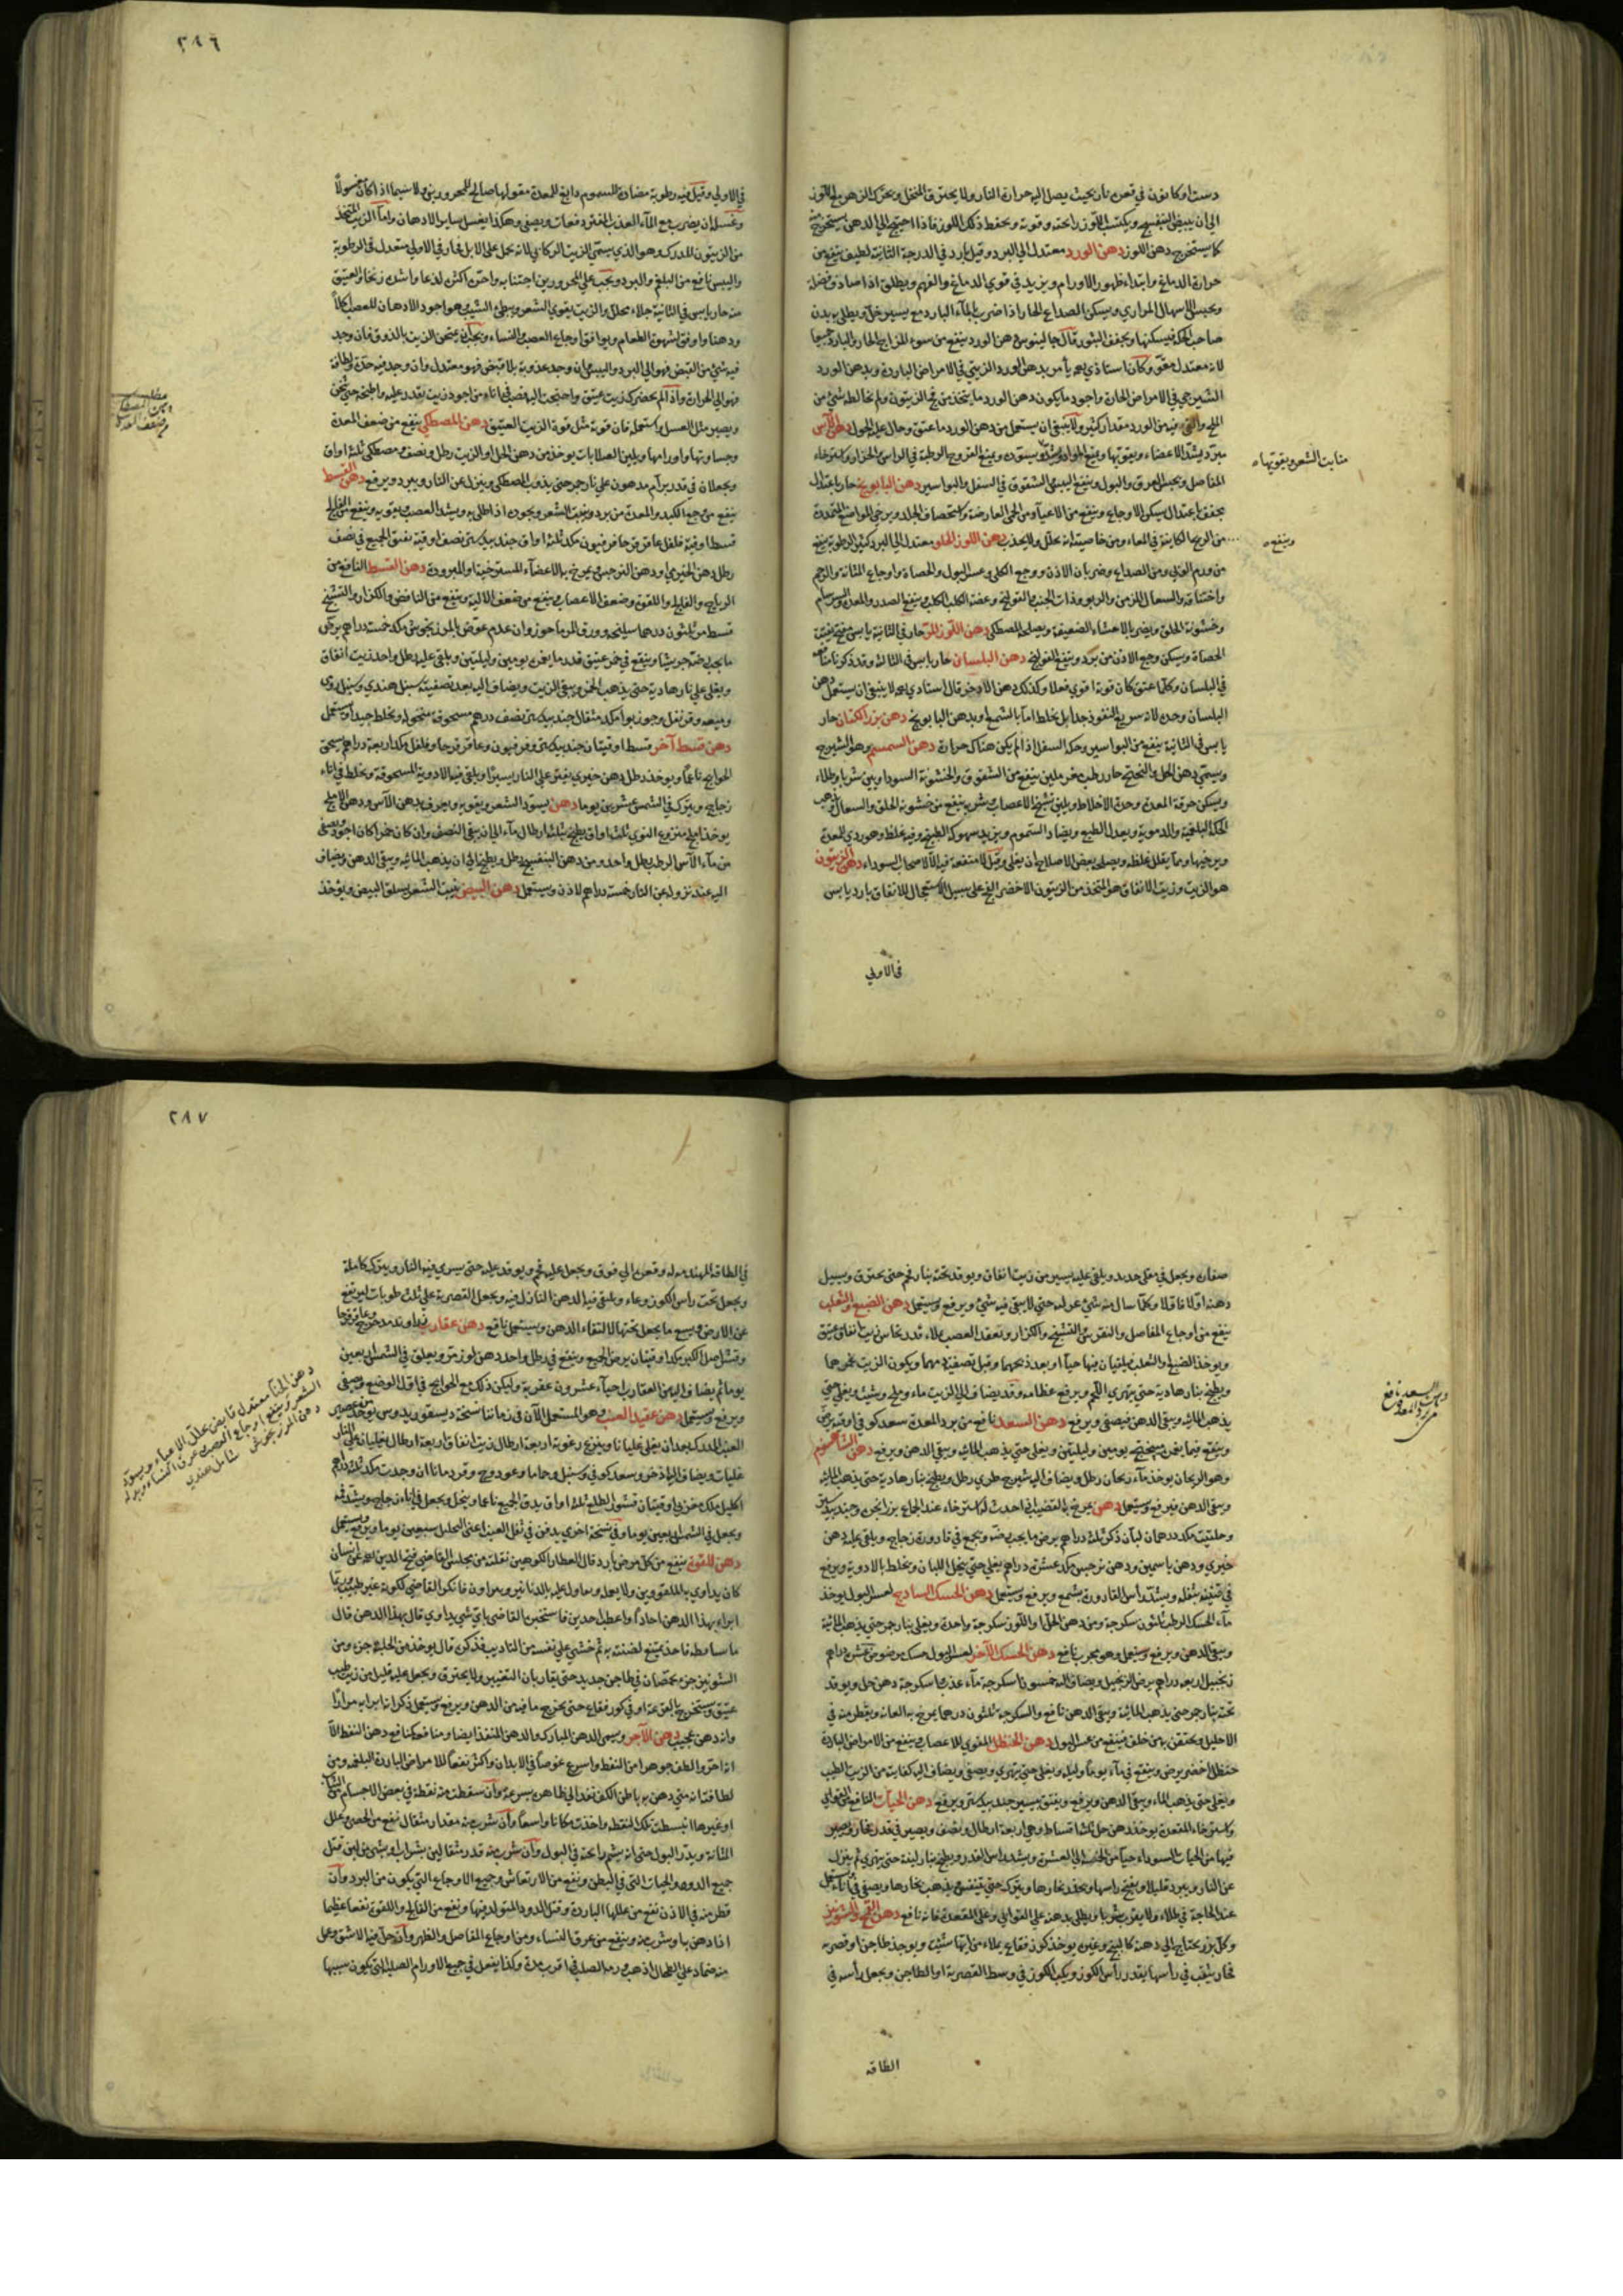 دست اوكانون في قعر نار بحيث يصل اليه حرارة النار ولا يحترق المنخل ويحرك الزهر مع اللوز
الى ان يبيض البنفسج ويكتسب اللوز رائحته وقوته ويحفظ ذلك اللوز فاذا احتيج الى الدهن يستخرج منه
كما يستخرج دهن اللوز دهن الورد معتدل الى البرد وقيل بارد في الدرجة الثانية لطيف ينفع من
حرارة الدماغ وابتداء ظهور الاورام ويزيد في قوي الدماغ والفهم ويطلق اذا صادف فضلة
ويحبس الاسهال المراري ويسكن الصداع الحار اذا ضرب بالماء البارد مع يسير خل ويطلى به بدن
صاحب الحكة فيسكنها ويجفف البثور قال جالينوس دهن الورد ينفع من سوء المزاج الحار والبارد جميعا
لانه معتدل مقو وكان استاذي يأمر بدهن الورد الزيتي في الامراض الباردة وبدهن الورد
الشيرجي في الامراض الحارة واجود ما يكون دهن الورد ما يتخذ من الزيتون ولم يخالطه شئ من
الملح والقي فيه من الورد مقدار كثير ولا ينبغي ان يستعمل من دهن الورد ما عتق وحال عليه الحول دهن الآس
يبرد ويشد الاعضاء ويقويها ويمنع المواد ويسوده ويمنع القروح الرطبة في الراس والحزاز واسترخاء
منابت الشعر ويقويها
المفاصل ويحبس العرق والبول وينفع اليبس والشقوق في السفل والبواسير دهن البابونج حار باعتدال
يجفف باعتدال يسكن الاوجاع وينفع من الاعياء ومن الحمى العارضة واستحصاف الجلد ويرخي المواضع المتمددة
من الريح الكاينة في المعاء ومن خاصيته انه يحلل ولا يجذب دهن اللوز الحلو معتدل الى البرد كثير الرطوبة ينفع
وينفع
من ورم الثدي ومن الصداع وضربان الاذن ووجع الكلى وعسر البول والحصاة واوجاع المثانة والرحم
واختناقه والسعال المزمن والربو وذات الجنب والقولنج وعضة الكلب الكلب وينفع الصدر والمعدة والبرسام
وخشونة الحلق ويضر بالاحشاء الضعيفة ويصلحه المصطكي دهن اللوز المر حار في الثانية يابس مفتح يفتت
الحصاة ويسكن وجع الاذن من برد وينفع القولنج دهن البلسان حار يابس في الثالثة وقد ذكرنا منافعه
في البلسان وكلما عتق كان قوته اقوي فعلا وكذلك دهن الاذخر قال استادي لا ينبغي ان يستعمل دهن
البلسان وحده لانه سريع النفوذ جدا بل يخلط اما بالشمع او بدهن البابونج دهن بزر الكتان حار
يابس في الثانية ينفع من البواسير وحكة السفل اذا لم يكن هناك حرارة دهن السمسم وهو الشيرج
ويسمى دهن الحل والخنتج حار رطب مغر ملين ينفع من الشقوق والخشونة السوداويين شربا وطلاء
ويسكن حرقة المعدة وحدة الاخلاط ويلين تشنج الاعصاب شربه ينفع من خشونة الحلق والسعال ويذهب
الحكة البلغمية والدموية ويعدل الطبع ويضاد السموم ويزيد سهوكة الطبع وفيه غلظ وهو ردي للمعدة
ويرخيها ومما يقلل غلظه ويصلحه بعض الاصلاح ان يغلى وقيل لا منفعة فيه الا لاصحاب السوداء دهن الزيتون
هو الزيت وزيت الانفاق هو المتخذ من الزيتون الاخضر الفج على سبيل الاستعجال للانفاق بارد يابس
في الاولي
٢٨٦
في الاولي وقيل فيه رطوبة مضادة للسموم دابغ للمعدة مقو لها صالح للمحرورين ولا سيما اذا كان مغسولا
وغسله ان يضرب مع الماء العذب المفتر دفعات ويصفى وهكذا يغسل ساير الادهان واما الزيت المتخذ
من الزيتون المدرك وهو الذي يسمي الزيت الركابي لانه يحمل على الابل فحار في الاولي معتدل في الرطوبة
واليبس نافع من البلغم والبرد ويجب على المحرورين اجتنابه واحتر اكثر لذعا واشد زنخا والعتيق
منه حار يابس في الثانية جلاء محلل والزيت يقوي الشعر ويبطئ الشيب وهو اجود الادهان للعصب اكلا
ودهنا واوفق لشهوة الطعام ويوافق اوجاع العصب والنساء ويجب ان يمتحن الزيت بالذوق فان وجد
فيه شئ من القبض فهو الى البرد واليبس وان وجد عذوبة بلا قبض فهو معتدل وان وجد فيه حدة ولطافة
فهو الى الحرارة واذا لم يحضرك زيت عتيق واحتجت اليه فصب في اناء من اجود زيت يقدر عليه واطبخه حتى يثخن
مطلب
دهن المصطكي
من ضعف المعدة
ويصير مثل العسل واستعمله فان قوته مثل قوة الزيت العتيق دهن المصطكي ينفع من ضعف المعدة
وجساوتها واورامها ويلين الصلابات يوخذ من دهن الحل او الزيت رطل ونصف ومصطكي ثلث اواق
ويجعلان في قدر برام مدهون على نار جمر حتى يذوب المصطكي وينزل عن النار ويبرد ويرفع دهن القسط
ينفع من وجع الكبد والمعدة من برد وينبت الشعر ويجوده اذا طلي به ويشد العصب ويقويه وينفع من الفالج
قسط اوقية فلفل عاقر قرحا فرفيون مكد ثلث اواق جندبيدستر نصف اوقية يفتق الجميع في نصف
رطل دهن الخيري او دهن النرجس ويمرخ به الاعضاء المسترخية والمبرودة دهن القسط النافع من
الرياح والفالج واللقوة وضعف الاعصاب وينفع من ضعف الالية وينفع من النافض والكزاز والتشنج
قسط مر ثلثون درهما سليخة وورق المرماحوز وان عدم عوض بالمرزنجوش مكد خمسة دراهم يرض
ما يجب رضه جريشا وينقع في خمر عتيق قدر ما يغمره يومين وليلتين ويلقى عليه رطل واحد زيت انفاق
ويغلى على نار هادية حتى يذهب الخمر ويبقى الزيت ويضاف اليه بعد تصفيته سنبل هندي وسنبل رومي
وميعه وقرنفل وجوزبوا مكد مثقال جندبيدستر نصف درهم مسحوقة منخوله ويخلط جيدا ويستعمل
دهن قسط آخر قسط اوقيتان جندبيدستر وفرفيون وعاقر قرحا وفلفل مكد اربعة دراهم يسحق
الحوائج ناعما ويوخذ رطل دهن خيري يفتر على النار يسيرا ويلقى فيه الادوية المسحوقة ويخلط في اناء
زجاج ويترك في الشمس عشرين يوما دهن يسود الشعر ويقويه ويعرف بدهن الآس ودهن الاملج
يوخذ املج منزوع النوي ثلث اواق يطبخ بثلثة ارطال ماء الى ان يبقى النصف وان كان خمرا كان اجود ويصفى
من ماء الآس الرطب رطل واحد ومن دهن البنفسج رطل ويطبخ الى ان يذهب المائية ويبقى الدهن ويضاف
اليه عند نزوله عن النار خمسة دراهم لاذن ويستعمل دهن البيض ينبت الشعر يسلق البيض ويوخذ
صفاره ويجعل في مقلى حديد ويلقى عليه يسير من زيت انفاق ويوقد تحته بنار فحم حتى يحترق ويسيل
دهنه اولا فاولا وكلما سال منه شئ عزله حتى لا يبقى فيه شئ ويرفع ويستعمل دهن الضبع والثعلب
ينفع من اوجاع المفاصل والنقرس والتشنج والكزاز وتعقد العصب يملاء قدر نحاس زيت انفاق عتيق
ويوخذ الضبع او الثعلب يلقيان فيها حيا او بعد ذبحهما وقبل تصفية دمهما ويكون الزيت بغمرهما
ويطبخ بنار هادية حتى يتهرى اللحم ويرفع عظامه وقد يضاف الى الزيت ماء وملح وشبث ويغلى حتى
يذهب المائية ويبقى الدهن فيصفى ويرفع دهن السعد نافع من برد المعدة سعد كوفي اوقية يرض
دهن السعد نافع
من برد المعدة
وينقع فيما يغمره ميبختج يومين وليلتين ويغلى حتى يذهب المائية ويبقى الدهن ويرفع دهن الشاهسفرم
وهو الريحان يوخذ ماء ريحان رطل ويضاف اليه شيرج طري رطل ويطبخ بنار هادية حتى يذهب المائية
ويبقى الدهن فيرفع ويستعمل دهن يمرخ به القضيب اذا حدث له استرخاء عند الجماع بزر انجره وجندبيدستر
وحلتيت مكد درهمان لبان ذكر ثلثة دراهم يرض ما يجب رضه ويجمع في قارورة زجاج ويلقى عليه دهن
خيري ودهن ياسمين ودهن نرجس مكد عشرة دراهم يغلى حتى ينحل اللبان ويخلط بالادوية ويرفع
في قنينة بثفله ويشد راس القارورة بشمع ويرفع ويستعمل دهن الحسك الساذج لعسر البول يوخذ
ماء الحسك الرطب ثلثون سكرجة ومن دهن الحل او اللوز سكرجة واحدة ويغلى بنار جمر حتى يذهب المائية
ويبقى الدهن ويرفع ويستعمل وهو مجرب نافع دهن الحسك الآخر لعسر البول حسك مرضوض عشرة دراهم
زنجبيل اربعة دراهم يرض الزنجبيل ويضاف اليه خمسون سكرجة ماء عذب سكرجة دهن حل ويوقد
تحته بنار جمر حتى يذهب المائية ويبقى الدهن نافع والسكرجة ثلثون درهما يمرخ به العانة ويقطر منه في
الاحليل ويحتقن به من خلف فينفع من عسر البول دهن الحنظل المقوي للاعصاب وينفع من الامراض الباردة
حنظل اخضر يرض وينقع في ماء يوما وليلة ويغلى حتى يتهرى ويصفى ويضاف اليه كفايته من الزيت الطيب
ويغلى حتى يذهب الماء ويبقى الدهن ويرفع ويفتق بيسير جندبيدستر ويرفع دهن الحيات النافع للقوابي
واسترخاء المقعدة يوخذ دهن حل ثلثة اقساط وهي اربعة ارطال ونصف ويصير في قدر فخار ويصير
فيها من الحيات السوداء حيا من الخمسة الى العشرة ويشد راس القدر ويطبخ بنار لينة حتى يتهرى ثم ينزل
عن النار ويبرد قليلا ويفتح راسها ويحذر بخارها ويترك حتى يتنفس ويذهب بخارها ويصفى في اناء ويستعمل
عند الحاجة في طلاء ولا يقرب شربا ويطلى بدهنه على القوابي وعلى المقعدة فانه نافع دهن القمح والشونيز
وكل بزر يحتاج الى دهنه كالبنج وغيره يوخذ كوز فقاع يملاء من ايها شئت ويوجد طاجن او قصرية
فخار يثقب في راسها بقدر راس الكوز ويكب الكوز في وسط القصرية او الطاجن ويجعل رأسه في
الطاقة
٢٨٧
في الطاقة المهندمة له وقعره الى فوق ويجعل عليه فحم ويوقد عليه حتى يسري فيه النار ويترك كاملة
ويجعل تحت راس الكوز وعاء ويلتقى فيه الدهن النازل فيه ويجعل القصرية على ثلث طوبات ليرتفع
عن الارض ويسع ما يجعل تحتها لالتقاء الدهن ويستعمل نافع دهن عقارب زراوند مدحرج وعاقرقرحا
وقشر اصل الكبر مكد اوقيتان يرض الجميع وينقع في رطل واحد دهن لوز مر ويعلق في الشمس اربعين
يوما ثم يضاف اليه من العقارب احياء عشرون عقربة وليكن ذلك مع الحوائج في اول الوضع ويصفى
ويرفع ويستعمل دهن عقيد العنب وهو المستعمل الآن في زماننا نسخة ديسقوريدوس يوخذ من عصير
العنب المدرك بعد ان يغلى غليانا وينزع رغوته اربعة ارطال زيت انفاق اربعة ارطال يغليان على النار
غليات ويضاف اليه اذخر وسعد كوفي وسنبل وحماما وعود وج وقردمانا ان وجدت مكد ثلثة دراهم
اكليل ملك مقرض اوقيتان قشور الطلع ثلث اواق يدق الجميع ناعما وينخل ويجعل في اناء زجاج ويشد فمه
ويجعل في الشمس اربعين يوما وفي نسخة اخرى يدفن في ثفل العنب اعني البجليل سبعين يوما ويرفع ويستعمل
دهن للقوة ينفع من كل مرض بارد قال العطار الكوهين نقلته من مجلس القاضي فتح الدين عن انسان
كان يداوي به الملقوين ولا يعلمه وبعاول عليه بالدنانير وبعراون فانكر القاضي لكونه غير طبيب
ابراء بهذا الدهن احادا واعطب احدين فاستخبر القاضي باي شي يداوي قال بهذا الدهن قال
ما بسايطه فاخذ يمتنع لضنته به ثم خشي على نفسه من التاديب فذكره قال يوخذ من الحلبة جزء ومن
الشونيز جزء يحمصان في طاجن جديد حتى يقاربان التغيير ولا يحترق ويجعل عليه قليل من زيت طيب
عتيق ويستخرج بالقرعة او في كوز فقاع حتى يخرج ما فيه من الدهن ويرفع ويستعمل ذكر انه ابرا به مرارا
وانه دهن عجيب دهن الآجر ويسمى الدهن المبارك والدهن المنفذ ايضا ومنافعه كمنافع دهن النفط الا
انه احر والطف جوهرا من النفط واسرع غوصا في الابدان واكثر نفعا للامراض الباردة البلغمية ومن
لطافته انه متى دهن به باطن الكف نفذ الى ظاهره بسرعة وان سقطت منه نقطة في بعض الاجسام
او غيرها انبسطت تلك النقطة واخذت مكانا واسعا وان شرب منه مقدار مثقال نفع من الحصى وعلل
المثانة ويدر البول حتى انه يشم رائحته في البول وان شرب منه قدر مثقالين بشراب او بشئ من لبن قتل
جميع الدود والحيات التي في البطن ونفع من الارتعاش وجميع الاوجاع التي يكون من البرد وان
قطر منه في الاذن نفع من عللها الباردة وقتل الدود المتولد فيها ونفع من الفالج واللقوة نفعا عظيما
اذا دهن به او شرب منه وينفع من عرق النساء ومن اوجاع المفاصل والظهر وان حل فيه الاشق وعمل
منه ضماد على الطحال اذهب ورمه الصلب في اقرب مدة وكذا يفعل في جميع الاورام الصلبة التي يكون سببها
دهن الحنا معتدل قابض محلل الاعياء ويسود
الشعر وينفع اوجاع العصب وعرق النساء
دهن المرزنجوش شامل هندي